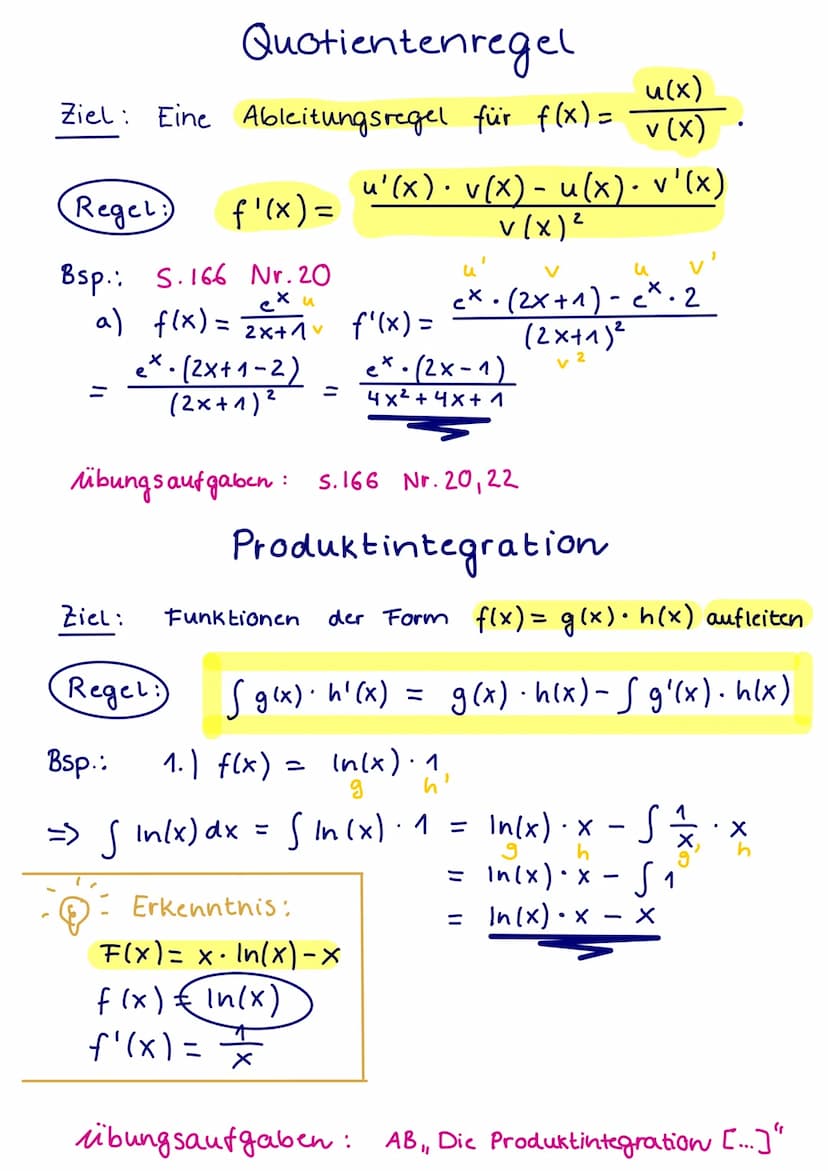 Quotientenregel
Ziel: Eine Ableitungsregel für f(x) = u(x) / v(x) .
Regel: f'(x) = u'(x) · v(x) - u(x) · v'(x) / v(x)²
Bsp.: S.166 Nr. 20
u' v u v'
a) f(x) = e^x / 2x+1 u v f'(x) = e^x · (2x+1) - e^x · 2 / (2x+1)²
v²
= e^x · (2x+1-2) / (2x+1)² = e^x · (2x-1) / 4x² + 4x + 1
Übungsaufgaben: S.166 Nr. 20, 22
Produktintegration
Ziel: Funktionen der Form f(x) = g(x) · h(x) aufleiten
Regel: ∫ g(x) · h'(x) = g(x) · h(x) - ∫ g'(x) · h(x)
Bsp.: 1.) f(x) = ln(x) · 1
g h'
=> ∫ ln(x) dx = ∫ ln(x) · 1 = ln(x) · x - ∫ 1/x · x
g h g' h
= ln(x) · x - ∫ 1
= ln(x) · x - x
Erkenntnis:
F(x) = x · ln(x) - x
f(x) = ln(x)
f'(x) = 1/x
Übungsaufgaben: AB „Die Produktintegration [...]"